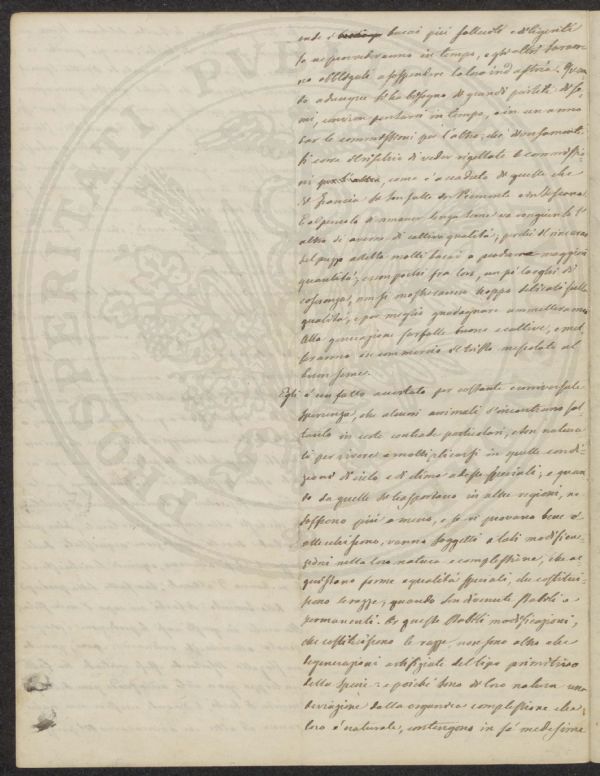 PROSPERITATI PUBLI
onde i bacai più solleciti e diligenti
se ne provvederanno in tempo, e gli altri saran-
no obbligati a sospendere la loro industria. Quan-
do adunque si ha bisogno di grandi partite di se-
mi, convien pensarvi in tempo, e in un anno
dar le commissioni per l'altro; che diversamente
si corre il rischio di veder rigettate le commissio-
ni, come è accaduto di quelle che
di Francia si son fatte in Piemonte e in Toscana
E al pericolo di rimaner senza seme va congiunto l'
altro di averne di cattiva qualità; perchè il rincaro
del prezzo alletta molti bacai a produrne maggior
quantità; e non pochi fra loro, un po' larghi di
coscienza, non si mostreranno troppo delicati sulla
qualità, e per meglio guadagnare ammetteranno
alla generazione farfalle buone e cattive, e met-
teranno in commercio il tristo mescolato al
buon seme.
Egli è un fatto accertato per costante e universale
sperienza, che alcuni animali s'incontrano sol
tanto in certe contrade particolari, e son natura
ti per vivere e moltiplicarsi in quelle condi-
zioni di cielo e di clima ad essi speciali; e quan
do da quelle si trasportano in altre regioni, ne
soffrono più o meno, e se vi provano bene e v'
attecchiscono, vanno soggetti a tali modifica-
zioni nella loro natura e complessione, che ac-
quistano forme e qualità speciali, che costitui-
scono le razze, quando son divenute stabili e
permanenti. Or queste stabili modificazioni,
che costituiscono le razze, non sono altro che
degenerazioni artifiziate del tipo primitivo
della specie: e poichè sono di loro natura una
deviazione dalla organica complessione che
loro è naturale, contengono in sè medesime